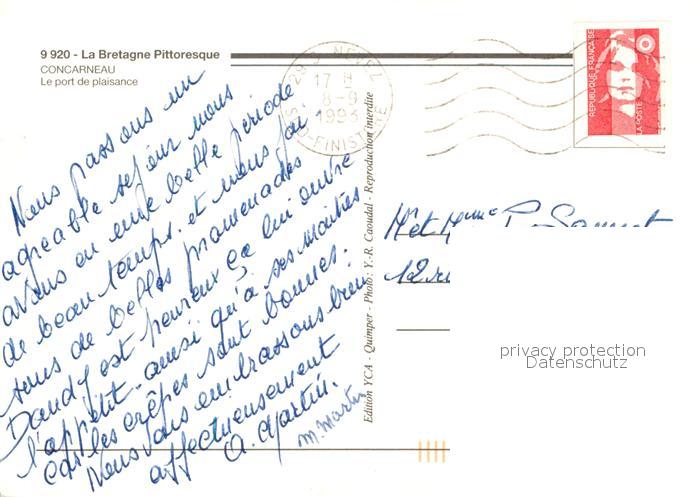 9 920 - La Bretagne Pittoresque
CONCARNEAU
Le port de plaisance
Nous passons un
agréable séjour nous
avons eu une belle période
de beau temps. et nous fai
sons de belles promenades
Dandy est heureux ça lui ouvre
l'appétit - ainsi qu'à ses maîtres
car les crêpes sont bonnes.
Nous vous embrassons bien
affectueusement
A. Martin.
M. Martin
29 NEVEZ
17 H
8-9
1993
SUD-FINISTERE
REPUBLIQUE FRANÇAISE
LA POSTE
Edition YCA - Quimper - Photo : Y.-R. Caoudal - Reproduction interdite
Mr et Mme
12 ru
privacy protection
Datenschutz